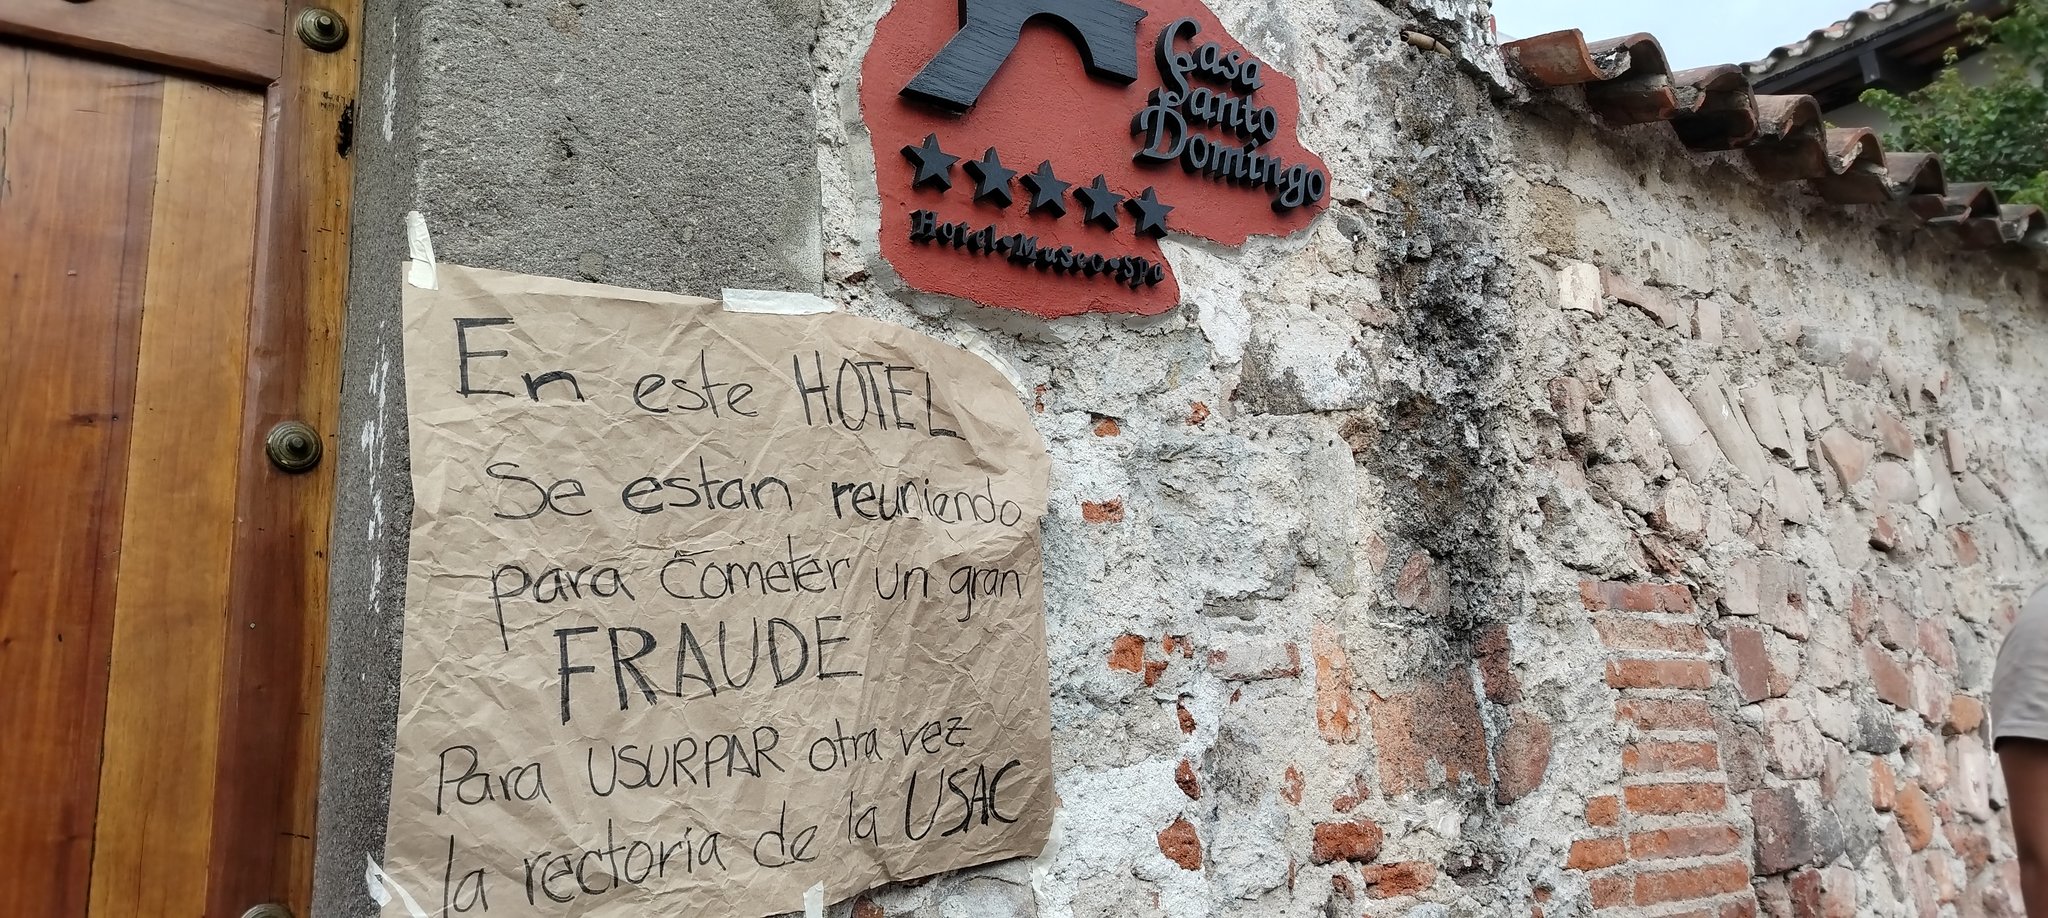 Casa
Santo
Domingo
Hotel•Museo•Spa
En este HOTEL
Se están reuniendo
para cometer un gran
FRAUDE
Para USURPAR otra vez
la rectoría de la USAC